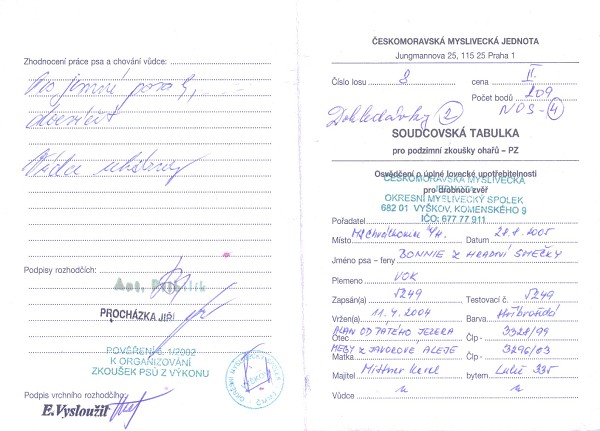 Zhodnocení práce psa a chování vůdce:
Podpisy rozhodčích:
PROCHÁZKA JIŘÍ
POVĚŘENÍ č. 1/2002
K ORGANIZOVÁNÍ
ZKOUŠEK PSŮ Z VÝKONU
Podpis vrchního rozhodčího:
E.Vysloužil
ČESKOMORAVSKÁ MYSLIVECKÁ JEDNOTA
Jungmannova 25, 115 25 Praha 1
Číslo losu 8 cena II.
Počet bodů 209
Dohledávky 2 NOS-4
SOUDCOVSKÁ TABULKA
pro podzimní zkoušky ohařů – PZ
Osvědčení o úplné lovecké upotřebitelnosti
pro drobnou zvěř
ČESKOMORAVSKÁ MYSLIVECKÁ
JEDNOTA
OKRESNÍ MYSLIVECKÝ SPOLEK
682 01 VYŠKOV, KOMENSKÉHO 9
IČO: 677 77 911
Pořadatel
Místo Datum 28.8.2005
Jméno psa – feny BONNIE Z HRADNÍ SMEČKY
Plemeno VOK
Zapsán(a) 5249 Testovací č. 5249
Vržen(a) 11.4.2004 Barva
Otec ALAN OD TATÉHO JEZERA Člp - 3328/99
Matka MEGY Z JAVOROVÉ ALEJE Člp - 3296/03
Majitel Mittner Karel bytem Luleč 335
Vůdce